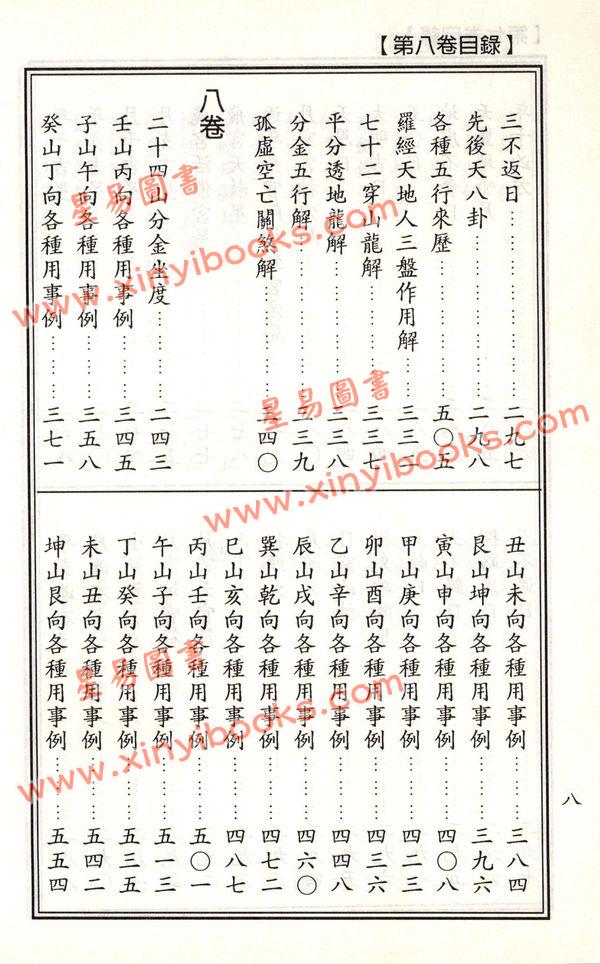 【第八卷目錄】
三不返日……………二九七
先後天八卦……………二九八
各種五行來歷……………五〇五
羅經天地人三盤作用解……………三三二
七十二穿山龍解……………三三七
平分透地龍解……………三三八
分金五行解……………三三九
孤虛空亡關煞解……………三四〇
八卷
二十四山分金坐度……………二四三
壬山丙向各種用事例……………三四五
子山午向各種用事例……………三五八
癸山丁向各種用事例……………三七一
丑山未向各種用事例……………三八四
艮山坤向各種用事例……………三九六
寅山申向各種用事例……………四〇八
甲山庚向各種用事例……………四二三
卯山酉向各種用事例……………四三六
乙山辛向各種用事例……………四四八
辰山戌向各種用事例……………四六〇
巽山乾向各種用事例……………四七二
巳山亥向各種用事例……………四八七
丙山壬向各種用事例……………五〇一
午山子向各種用事例……………五一三
丁山癸向各種用事例……………五三五
未山丑向各種用事例……………五四二
坤山艮向各種用事例……………五五四
八
星易圖書
www.xinyibooks.com
星易圖書
www.xinyibooks.com
星易圖書
www.xinyibooks.com